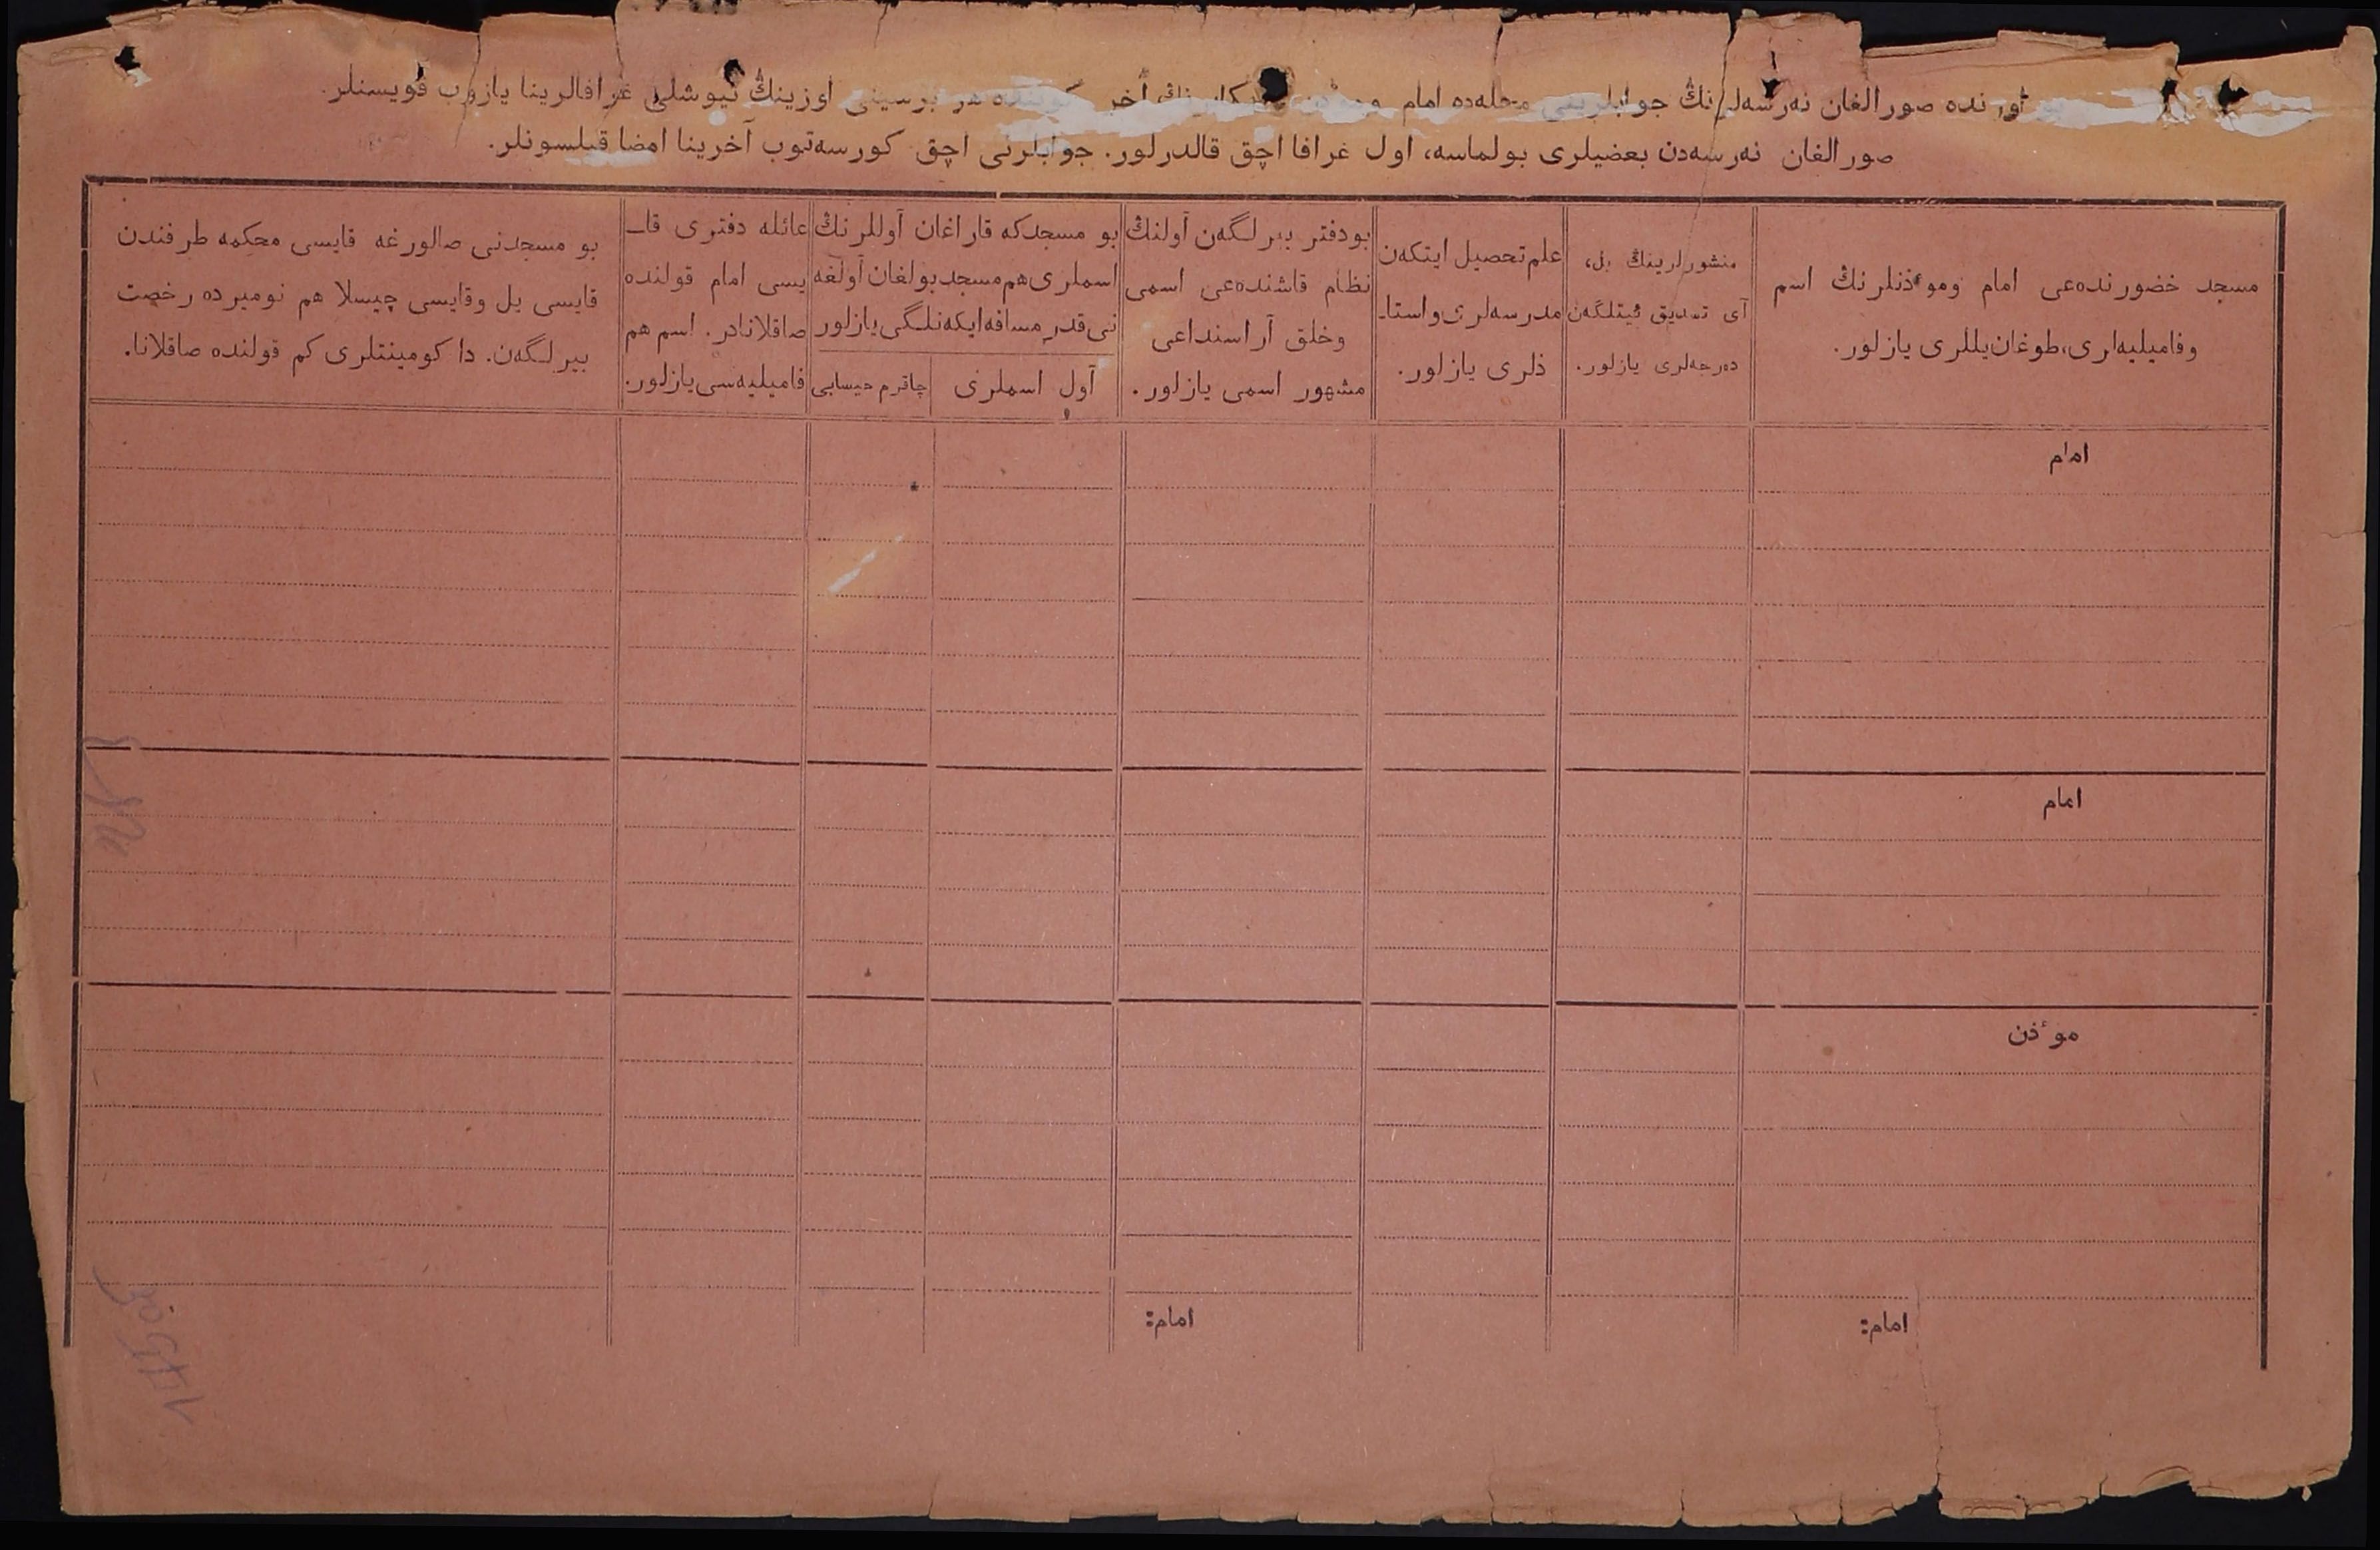 ئورنده صورالغان نه‌رسه‌لرنڭ جوابلرینی محله‌ده امام اوزینڭ تیوشلی غرافالرینا یازوب قویسنلر.
صورالغان نه‌رسه‌دن بعضیلری بولماسه، اول غرافا اچق قالدرلور. جوابلرنی اچق کورسه‌توب آخرینا امضا قیلسونلر.
مسجد خضورنده‌عی امام ومو ٔذنلرنڭ اسم
وفامیلیه‌لری، طوغان یللری یازلور.
منشورلرینڭ یل،
آی تصدیق ئیتلگه‌ن
ده‌رجه‌لری یازلور.
علم تحصیل ایتکه‌ن
مدرسه‌لری و استا-
ذلری یازلور.
بودفتر بیرلگه‌ن آولنڭ
نظام قاشنده‌عی اسمی
وخلق آراسنداعی
مشهور اسمی یازلور.
بو مسجدکه قاراغان آوللرنڭ
اسملری هم مسجد بولغان آولغه
نی قدر مسافه ایکه‌نلگی یازلور
آول اسملری
چاقرم حیسابی
عائله دفتری قا-
یسی امام قولنده
صاقلانادر. اسم هم
فامیلیه‌سی یازلور.
بو مسجدنی صالورغه قایسی محکمه طرفندن
قایسی یل وقایسی چیسلا هم نومیرده رخصت
بیرلگه‌ن. داکومینتلری کم قولنده صاقلانا.
امام
امام
مو ٔذن
امام:
امام: